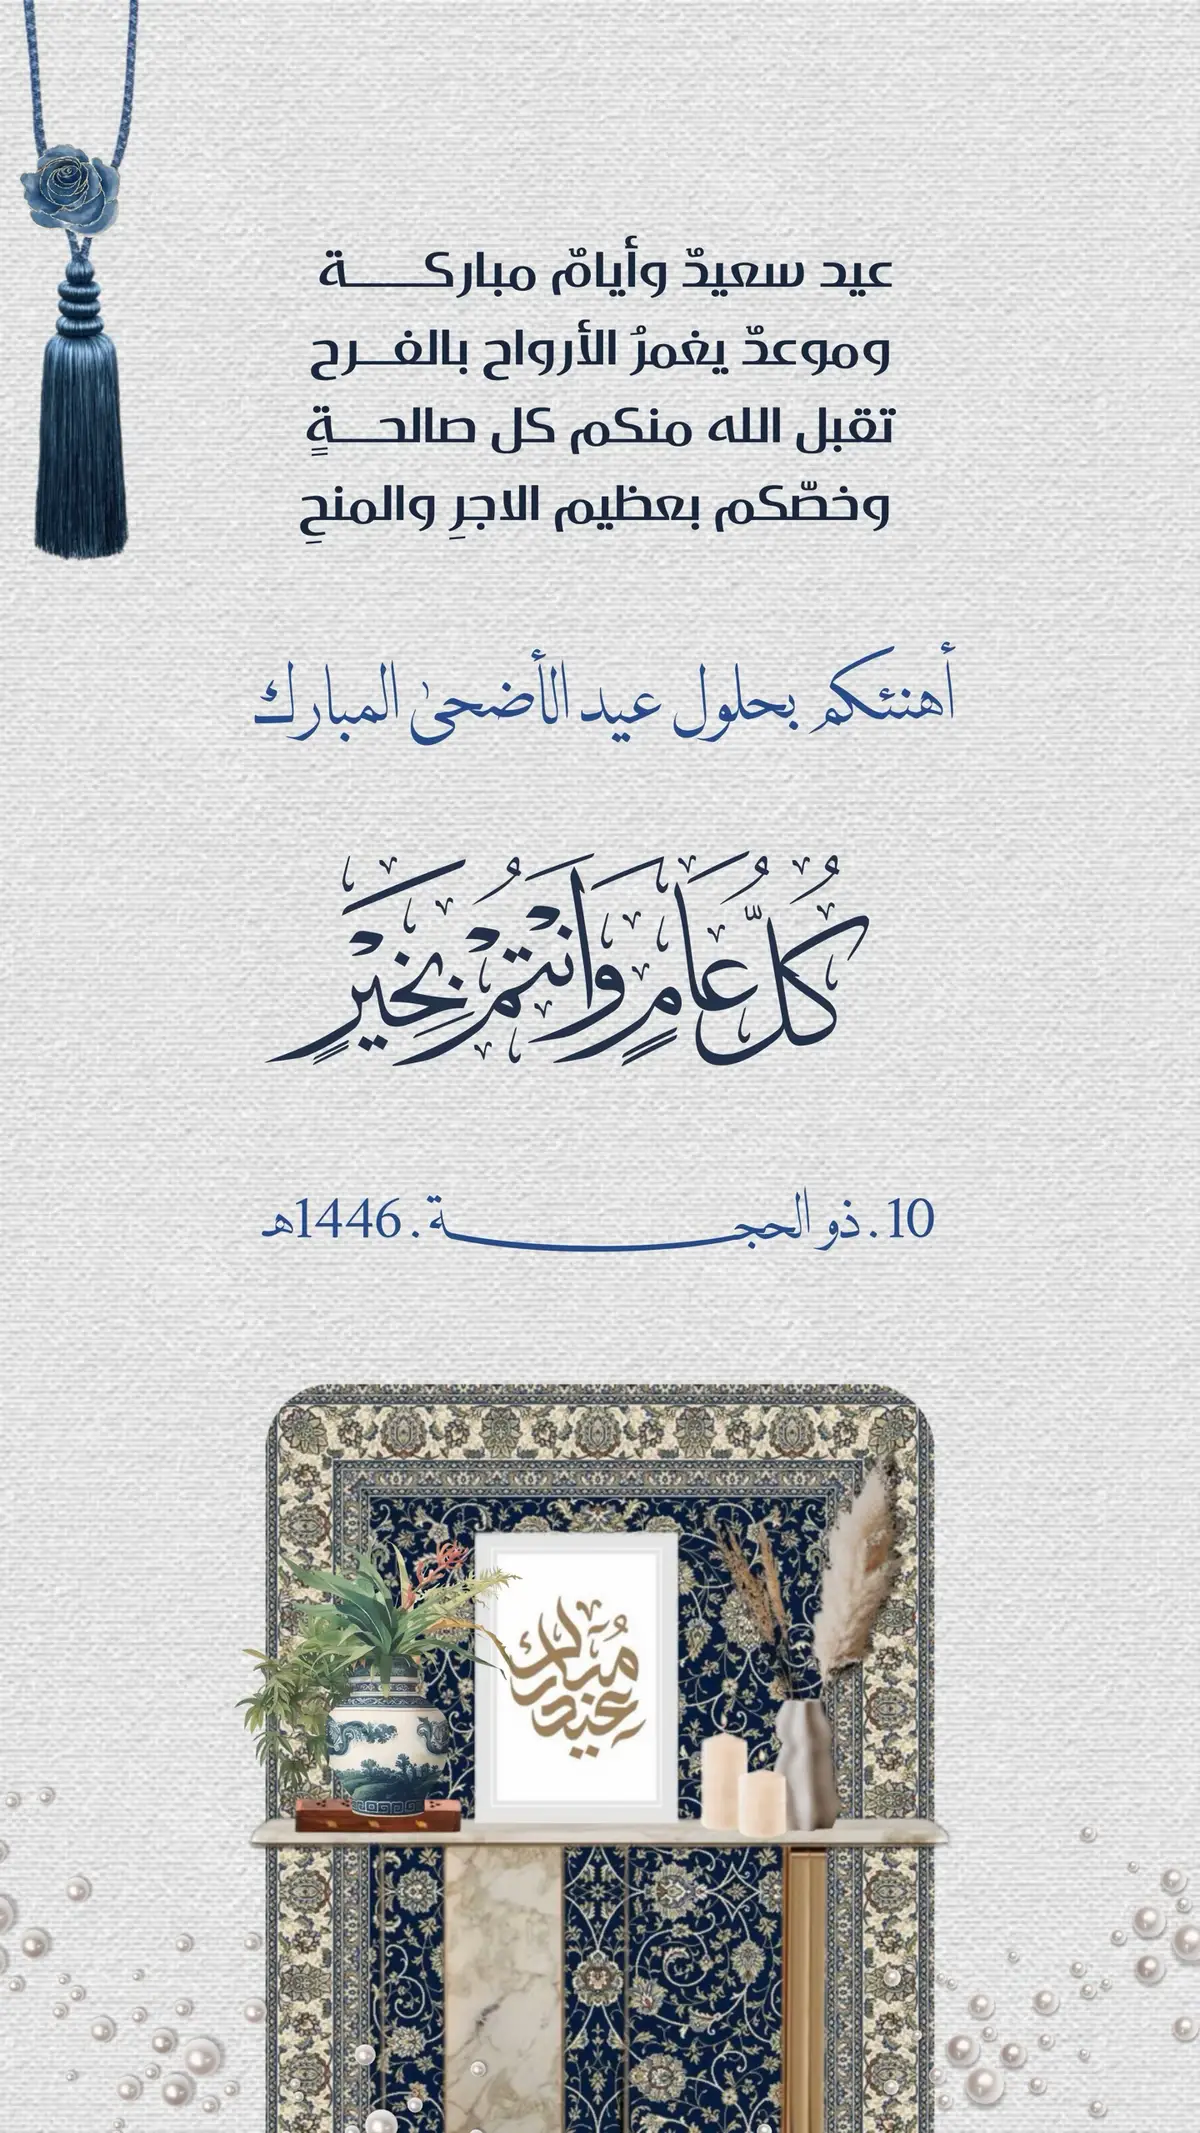 عيد سعيدٌ وأيامٌ مباركـــــة
وموعدٌ يغمرُ الأرواح بالفـــرح
تقبل الله منكم كل صالحـــةٍ
وخصّكم بعظيم الاجرِ والمنحِ
أهنئكم بحلول عيد الأضحىٰ المبارك
كُلُّ عَامٍ وَأَنْتُمْ بِخَيْرٍ
10. ذو الحجـــــــــــة. 1446هـ
عيد مبارك